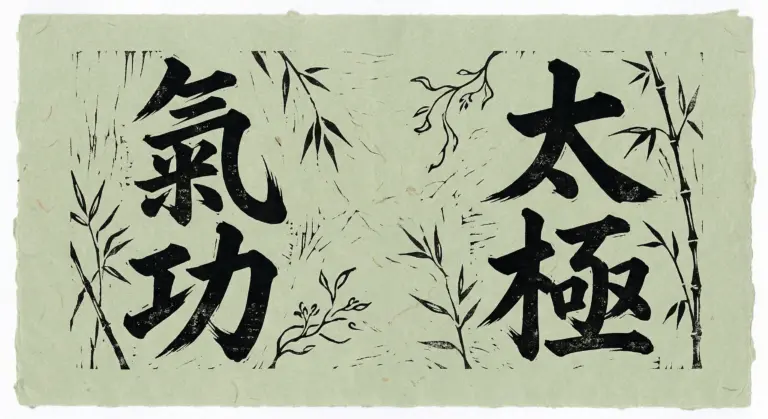 太極
氣功